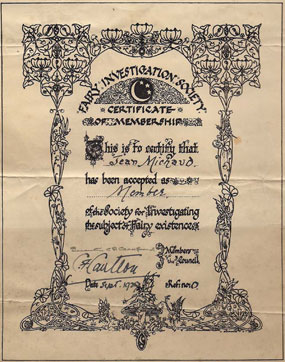 FAIRY · INVESTIGATION · SOCIETY
CERTIFICATE
OF MEMBERSHIP
This is to certify that
Jean Michaud
has been accepted as
Member
of the Society for Investigating
the subject of Fairy existence
Members
of Council
Date Sept.
Ref: no.